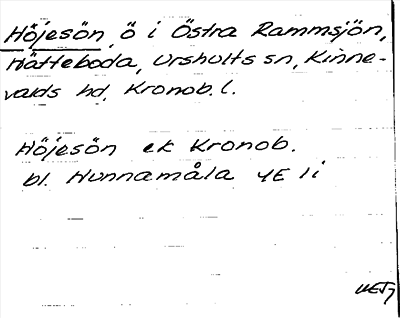 Höjesön, ö i Östra Rammsjön,
Hätteboda, Urshults sn, Kinne-
valds hd, Kronob. l.
Höjesön ek Kronob.
bl. Hunnamåla 4E 1i